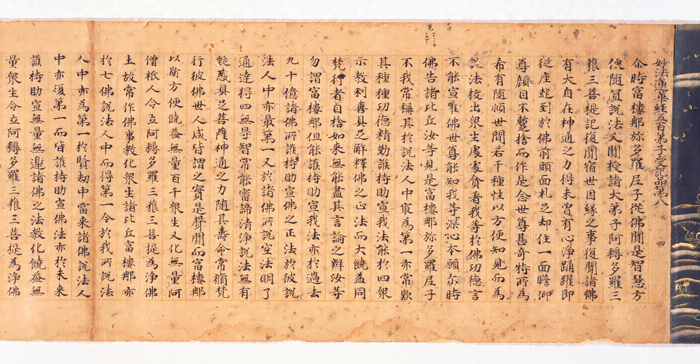 妙法蓮華經五百弟子受記品第八 四
尒時富樓那弥多羅尼子從佛聞是智慧方
便隨宜說法又聞授諸大弟子阿耨多羅三
藐三菩提記復聞宿世因緣之事復聞諸佛
有大自在神通之力得未曾有心淨踊躍即
從座起到於佛前頭面礼足却住一面瞻仰
尊顏目不蹔捨而作是念世尊甚奇特所為
希有隨順世間若干種性以方便知見而為
說法拔出衆生處處貪著我等於佛功德言
不能宣唯佛世尊能知我等深心本願尒時
佛告諸比丘汝等見是富樓那弥多羅尼子
不我常稱其於說法人中冣為第一亦常歎
其種種功德精勤護持助宣我法能於四衆
示教利喜具足解釋佛之正法而大饒益同
梵行者自捨如來無能盡其言論之辯汝等
勿謂富樓那但能護持助宣我法亦於過去
九十億諸佛所護持助宣佛之正法於彼說
法人中亦冣第一又於諸佛所說空法明了
通達得四無导智常能審諦清淨說法無有
疑惑具足菩薩神通之力隨其壽命常脩梵
行彼佛世人咸皆謂之實是聲聞而富樓那
以斯方便饒益無量百千衆生又化無量阿
僧祇人令立阿耨多羅三藐三菩提為淨佛
土故常作佛事教化衆生諸比丘富樓那亦
於七佛說法人中而得第一今於我所說法
人中亦為第一於賢劫中當來諸佛說法人
中亦復第一而皆護持助宣佛法亦於未來
護持助宣無量無邊諸佛之法教化饒益無
量衆生令立阿耨多羅三藐三菩提為淨佛